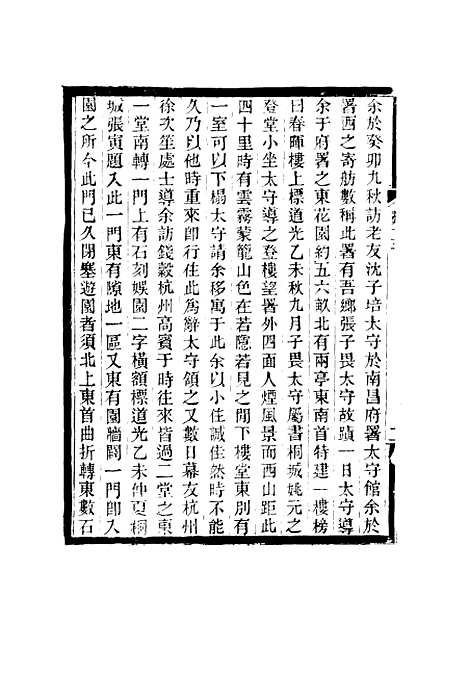 余於癸卯九秋訪老友沈子培太守於南昌府署太守館余於
署西之寄舫數稱此署有吾鄉張子畏太守故蹟一日太守導
余于府署之東花園約五六畝北有兩亭東南首特建一樓榜
曰春暉樓上標道光乙未秋九月子畏太守屬書桐城姚元之
登堂小坐太守導之登樓望署外四面人煙風景而西山距此
四十里時有雲霧蒙籠山色在若隱若見之閒下樓堂東別有
一室可以下榻太守請余移寓于此余以小住誠佳然時不能
久乃以他時重來卽行住此爲辭太守領之又數日幕友杭州
徐次笙處士導余訪錢穀杭州高賓于時往來皆過二堂之東
一堂南轉一門上有石刻娛園二字橫額標道光乙未仲夏桐
城張寅題入此一門東有隙地一區又東有園牆闢一門卽入
園之所今此門已久閉塞遊園者須北上東首曲折轉東數石